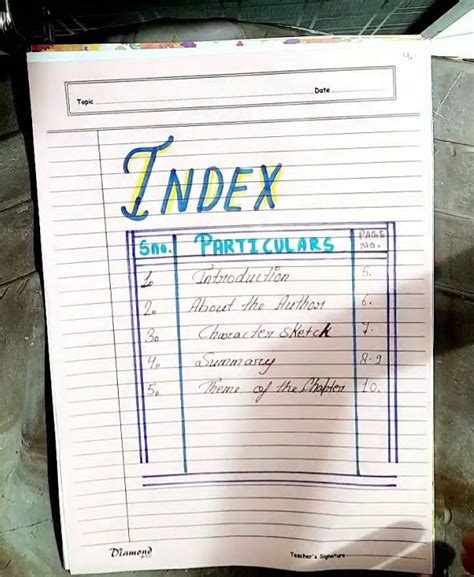 4.
Topic Date
INDEX
Sno. PARTICULARS PAGE NO.
1. Introduction 5.
2. About the Author 6.
3. Character Sketch 7.
4. Summary 8-9
5. Theme of the Chapter 10.
Diamond
Teacher's Signature